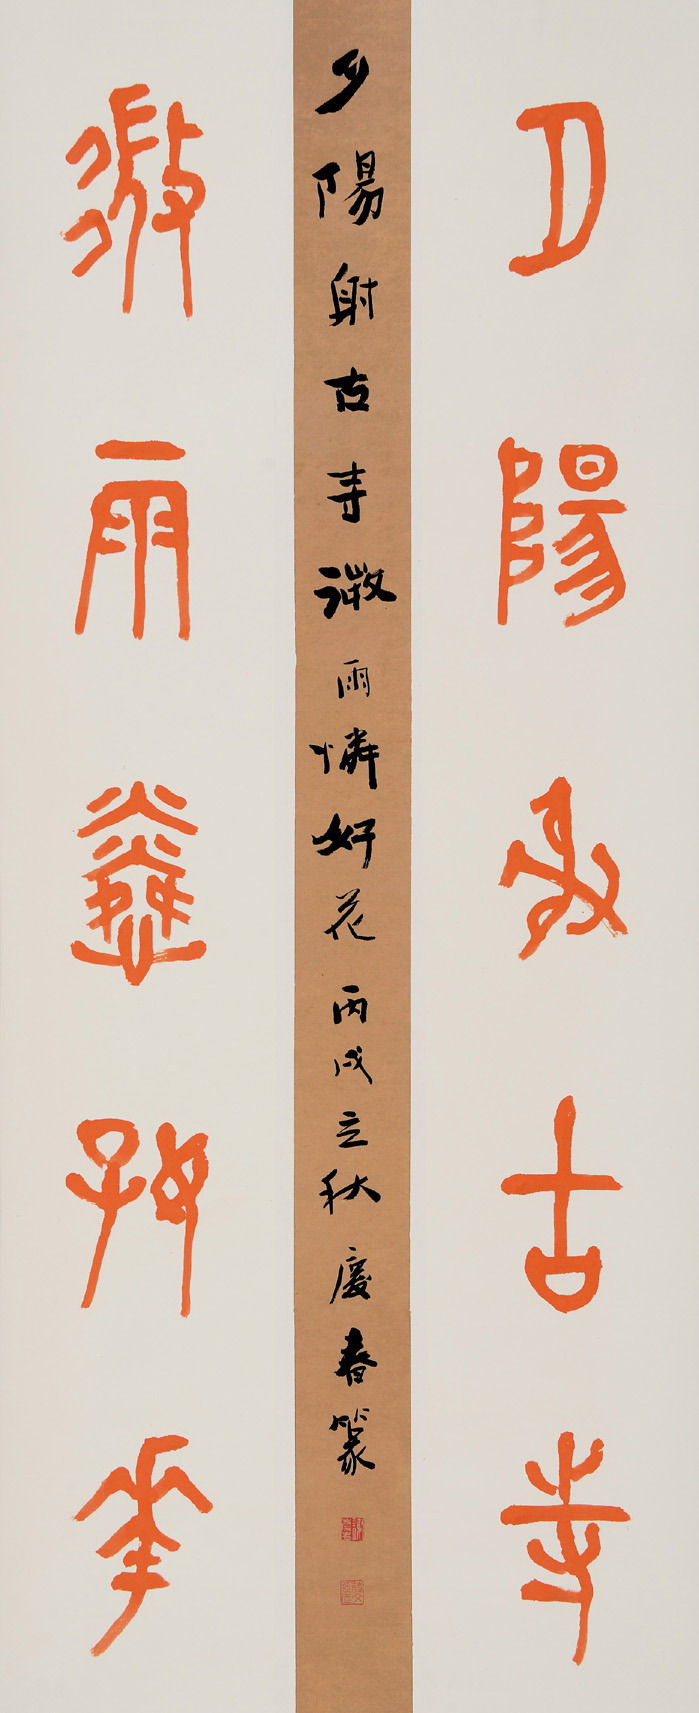 夕陽射古寺
微雨憐好花
夕陽射古寺微雨憐好花丙戌立秋慶春篆